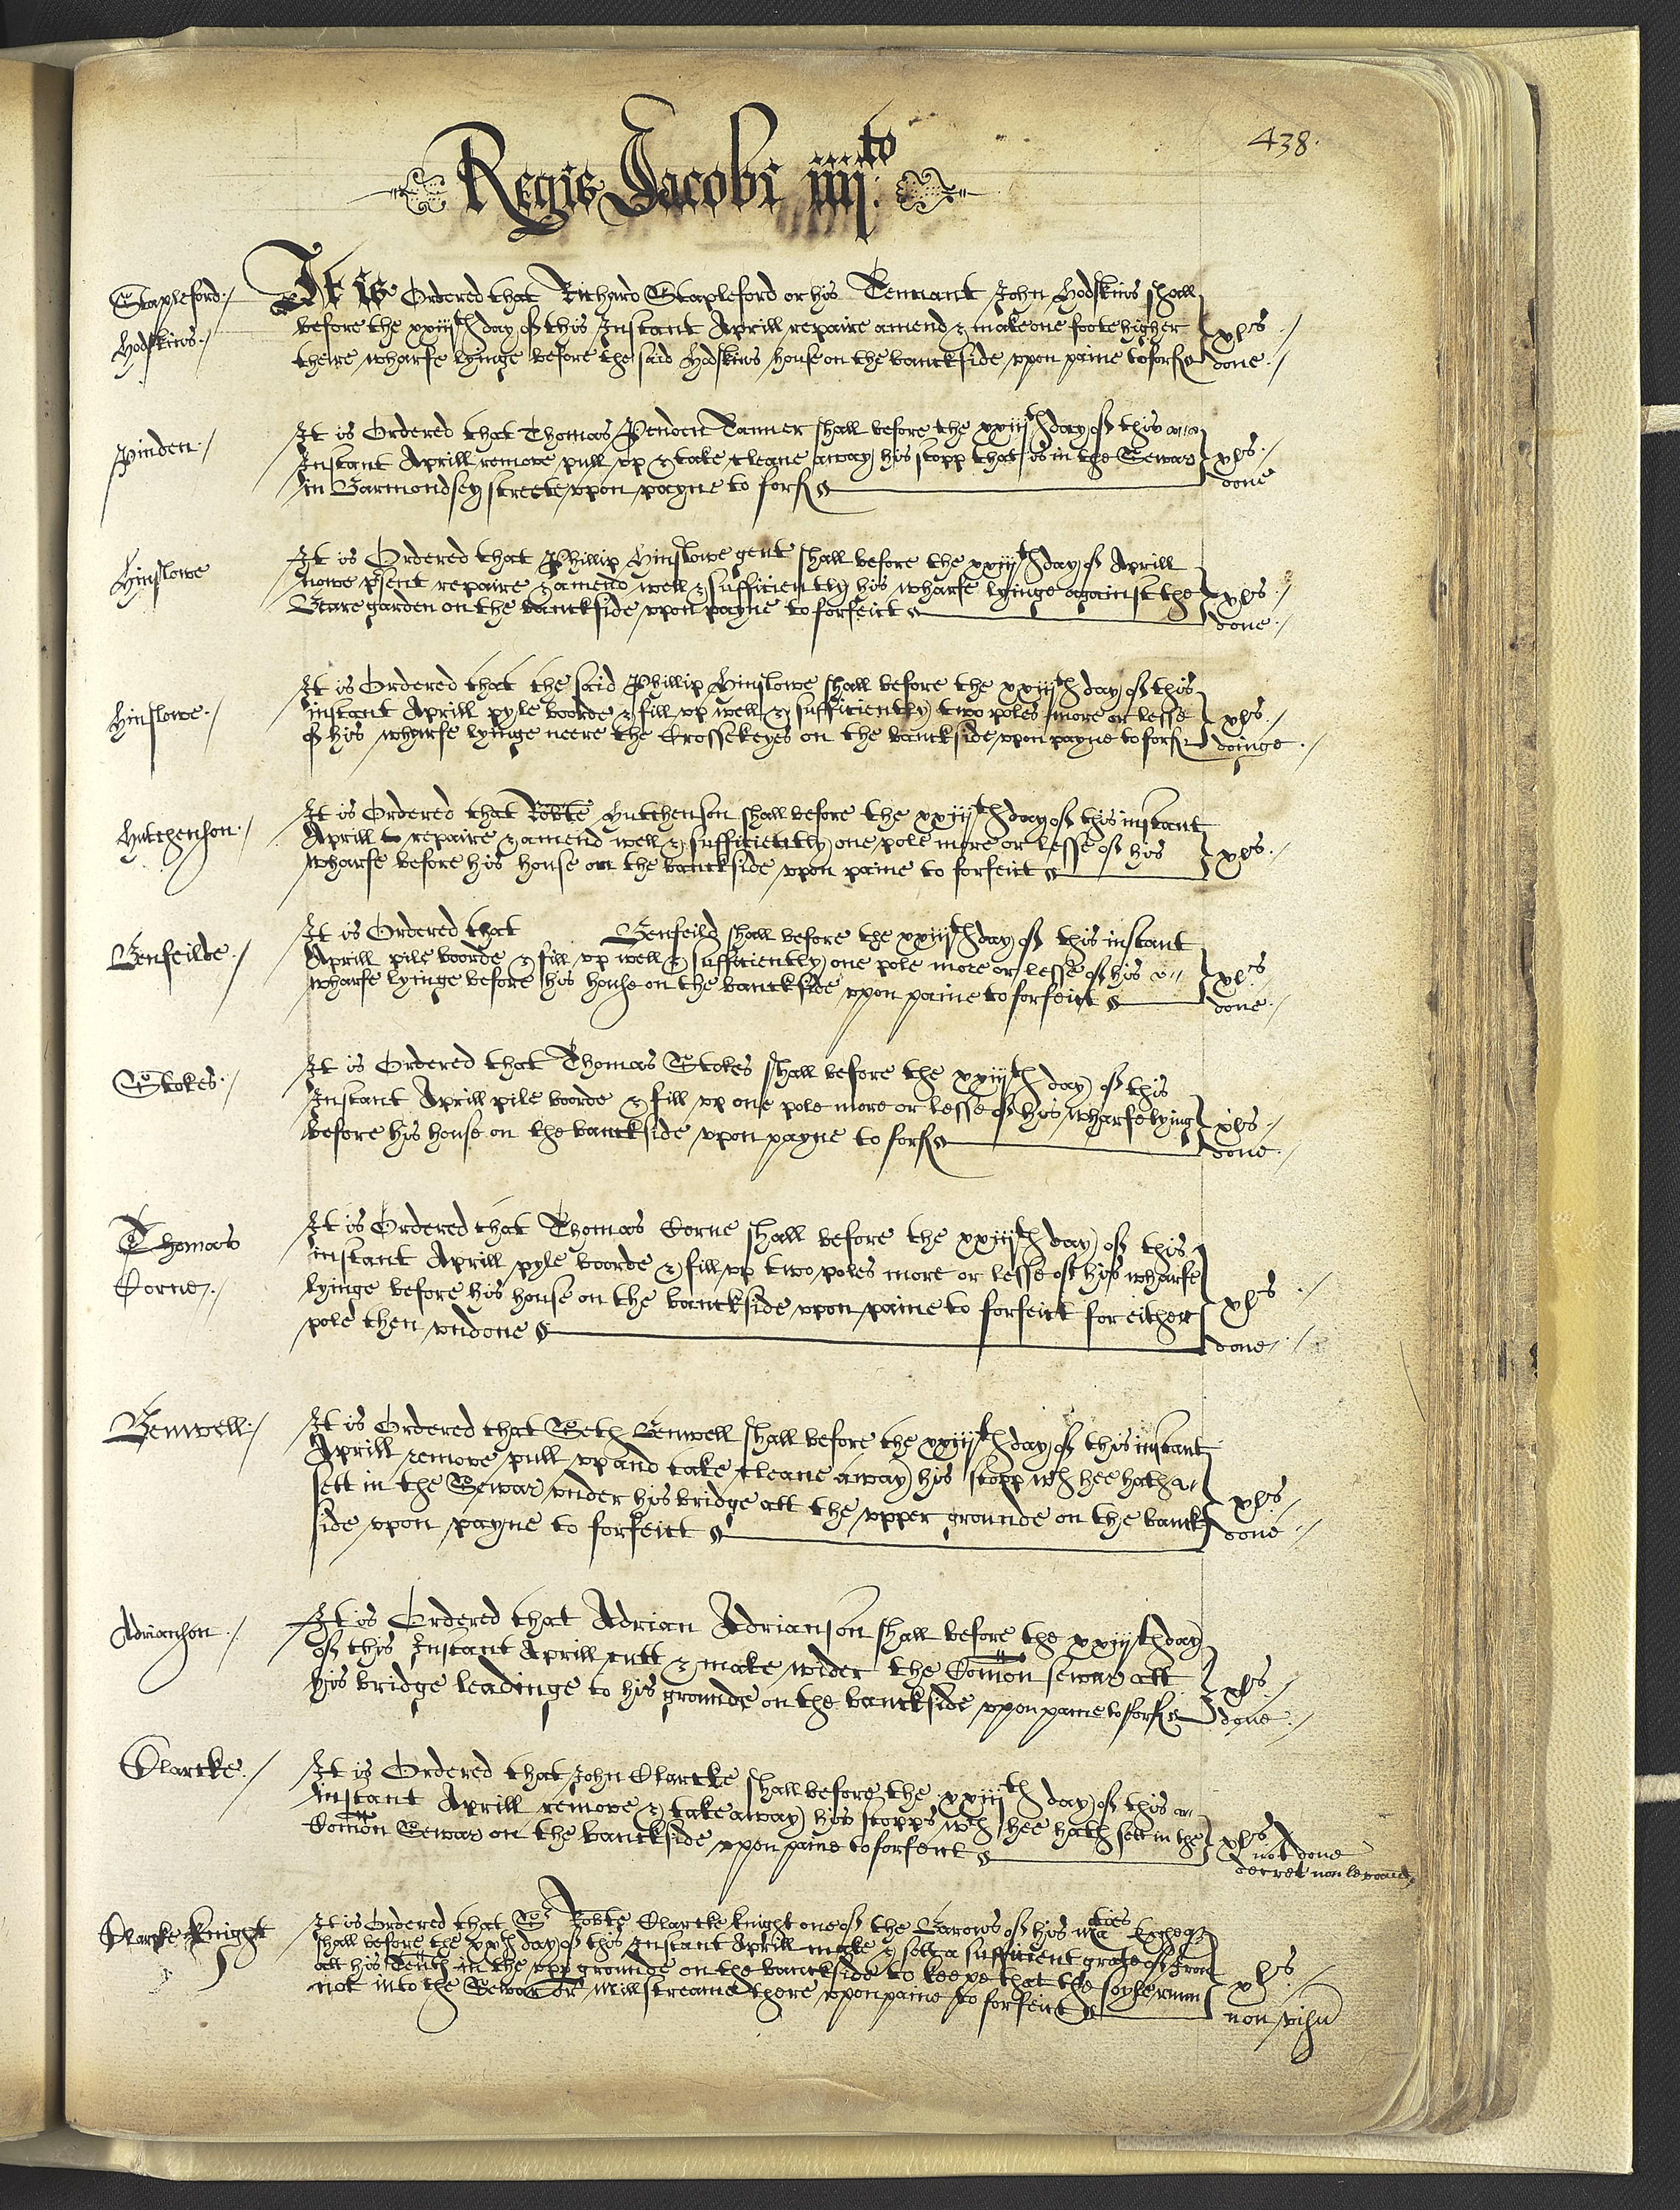 438.
Regis Jacobi iiij.to
Stapleford./
Hodskins./
It is Ordered that Richard Stapleford or his Tennant John Hodskins shall
before the xxiiijth day of this Instant Aprill repaire amend & make one foote higher
theire wharfe lyinge before the said Hodskins house on the banckside vpon paine to forf
xxs./
done./
Pinden./
It is Ordered that Thomas Penden Tanner shall before the xxiiijth day of this
Instant Aprill remove pull vp & take cleane away his stopp that is in the Sewar
in Barmondsey streete vpon payne to forf
xxs./
done
Hinslowe
It is Ordered that Phillip Hinslowe gent shall before the xxiiijth day of Aprill
nowe psent repaire & amend well & sufficiently his wharfe lyinge against the
Beare garden on the banckside vpon payne to forfeict
xxs./
done./
Hinslowe./
It is Ordered that the said Phillip Hinslowe shall before the xxiiijth day of this
instant Aprill pyle boorde & fill vp well & sufficiently two poles more or lesse
of his wharfe lyinge neere the Crossekeyes on the banckside vpon payne to forf
xxs./
doinge./
Hutchenson./
It is Ordered that Robte Hutchenson shall before the xxiiijth day of this instant
Aprill to repaire & amend well & sufficiently one pole more or lesse of his
wharfe before his house on the banckside vpon paine to forfeict
xxs./
Benfeilde./
It is Ordered that Benfeild shall before the xxiiijth day of this instant
Aprill pile boorde & fill vp well & sufficiently one pole more or lesse of his
wharfe lyinge before his house on the banckside vpon paine to forfeict
xxs
done./
Stokes./
It is Ordered that Thomas Stokes shall before the xxiiijth day of this
Instant Aprill pile boorde & fill vp one pole more or lesse of his wharfe lying
before his house on the banckside vpon payne to forf
xxs./
done./
Thomas
Corne./
It is Ordered that Thomas Corne shall before the xxiiijth day of this
instant Aprill pyle boorde & fill vp two poles more or lesse of his wharfe
lyinge before his house on the banckside vpon paine to forfeict for either
pole then vndone
xxs./
done./
Benwell./
It is Ordered that Seth Benwell shall before the xxiiijth day of this instant
Aprill remove pull vp and take cleane away his stopp wch hee hath
sett in the Sewar vnder his bridge att the vpper grounde on the banck
side vpon payne to forfeict
xxs./
done./
Adrianson./
It is Ordered that Adrian Adrianson shall before the xxiiijth day
of this Instant Aprill cutt & make wider the Comon sewar att
his bridge leadinge to his grounde on the banckside vpon paine to forf
xxs./
done./
Clarcke./
It is Ordered that John Clarcke shall before the xxiiijth day of this
instant Aprill remove & take away his stopps wch hee hath sett in the
Comon Sewar on the banckside vpon paine to forfeict
xxs./
not done
decret non levand
Clarcke Knight
It is Ordered that Sr Robte Clarcke knight one of the Barons of his maties Excheqr
shall before the xxth day of this Instant Aprill make & sett a sufficient grate of Iron
att his in the vpp grounde on the banckside to keepe that the soyle runn
not into the Sewar or Millstreame there vpon paine to forfeict
xxs./
non visu